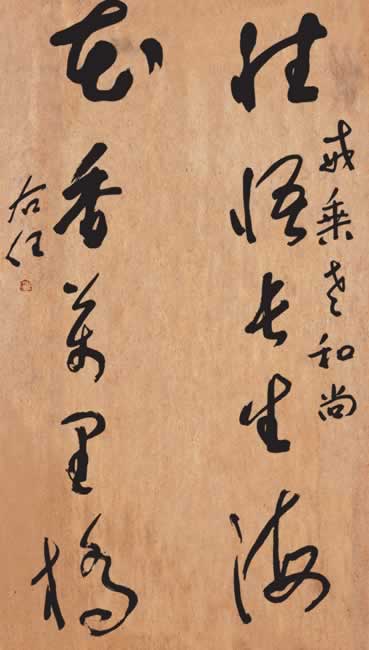 戒乘老和尚
性悟長生海
花香萬里橋
右任